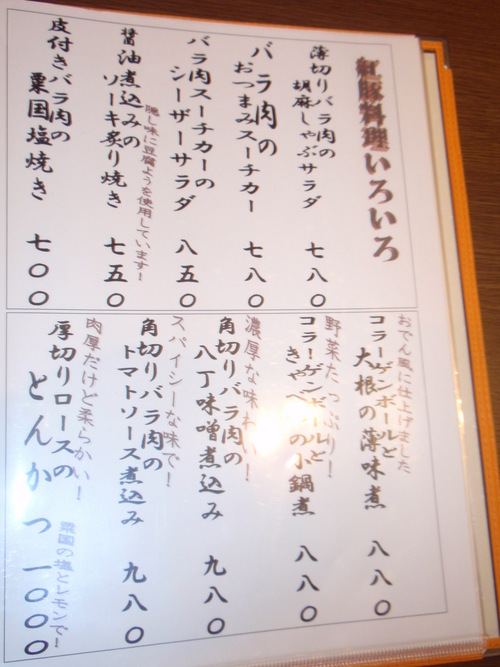 紅豚料理いろいろ
薄切りバラ肉の
胡麻しゃぶサラダ 七八〇
バラ肉の
おつまみスーチカー 七八〇
バラ肉スーチカーの
シーザーサラダ 八五〇
隠し味に豆腐ようを使用しています!
醤油煮込みの
ソーキ炙り焼き 七五〇
皮付きバラ肉の
粟国塩焼き 七〇〇
おでん風に仕上げました
コラーゲンボールと
大根の薄味煮 八八〇
野菜たっぷり!
コラーゲンボールと
きゃべつの小鍋煮 八八〇
濃厚な味わい!
角切りバラ肉の
八丁味噌煮込み 九八〇
スパイシーな味で!
角切りバラ肉の
トマトソース煮込み 九八〇
肉厚だけど柔らかい!
厚切りロースの
とんかつ 一〇〇〇
粟国の塩とレモンで!